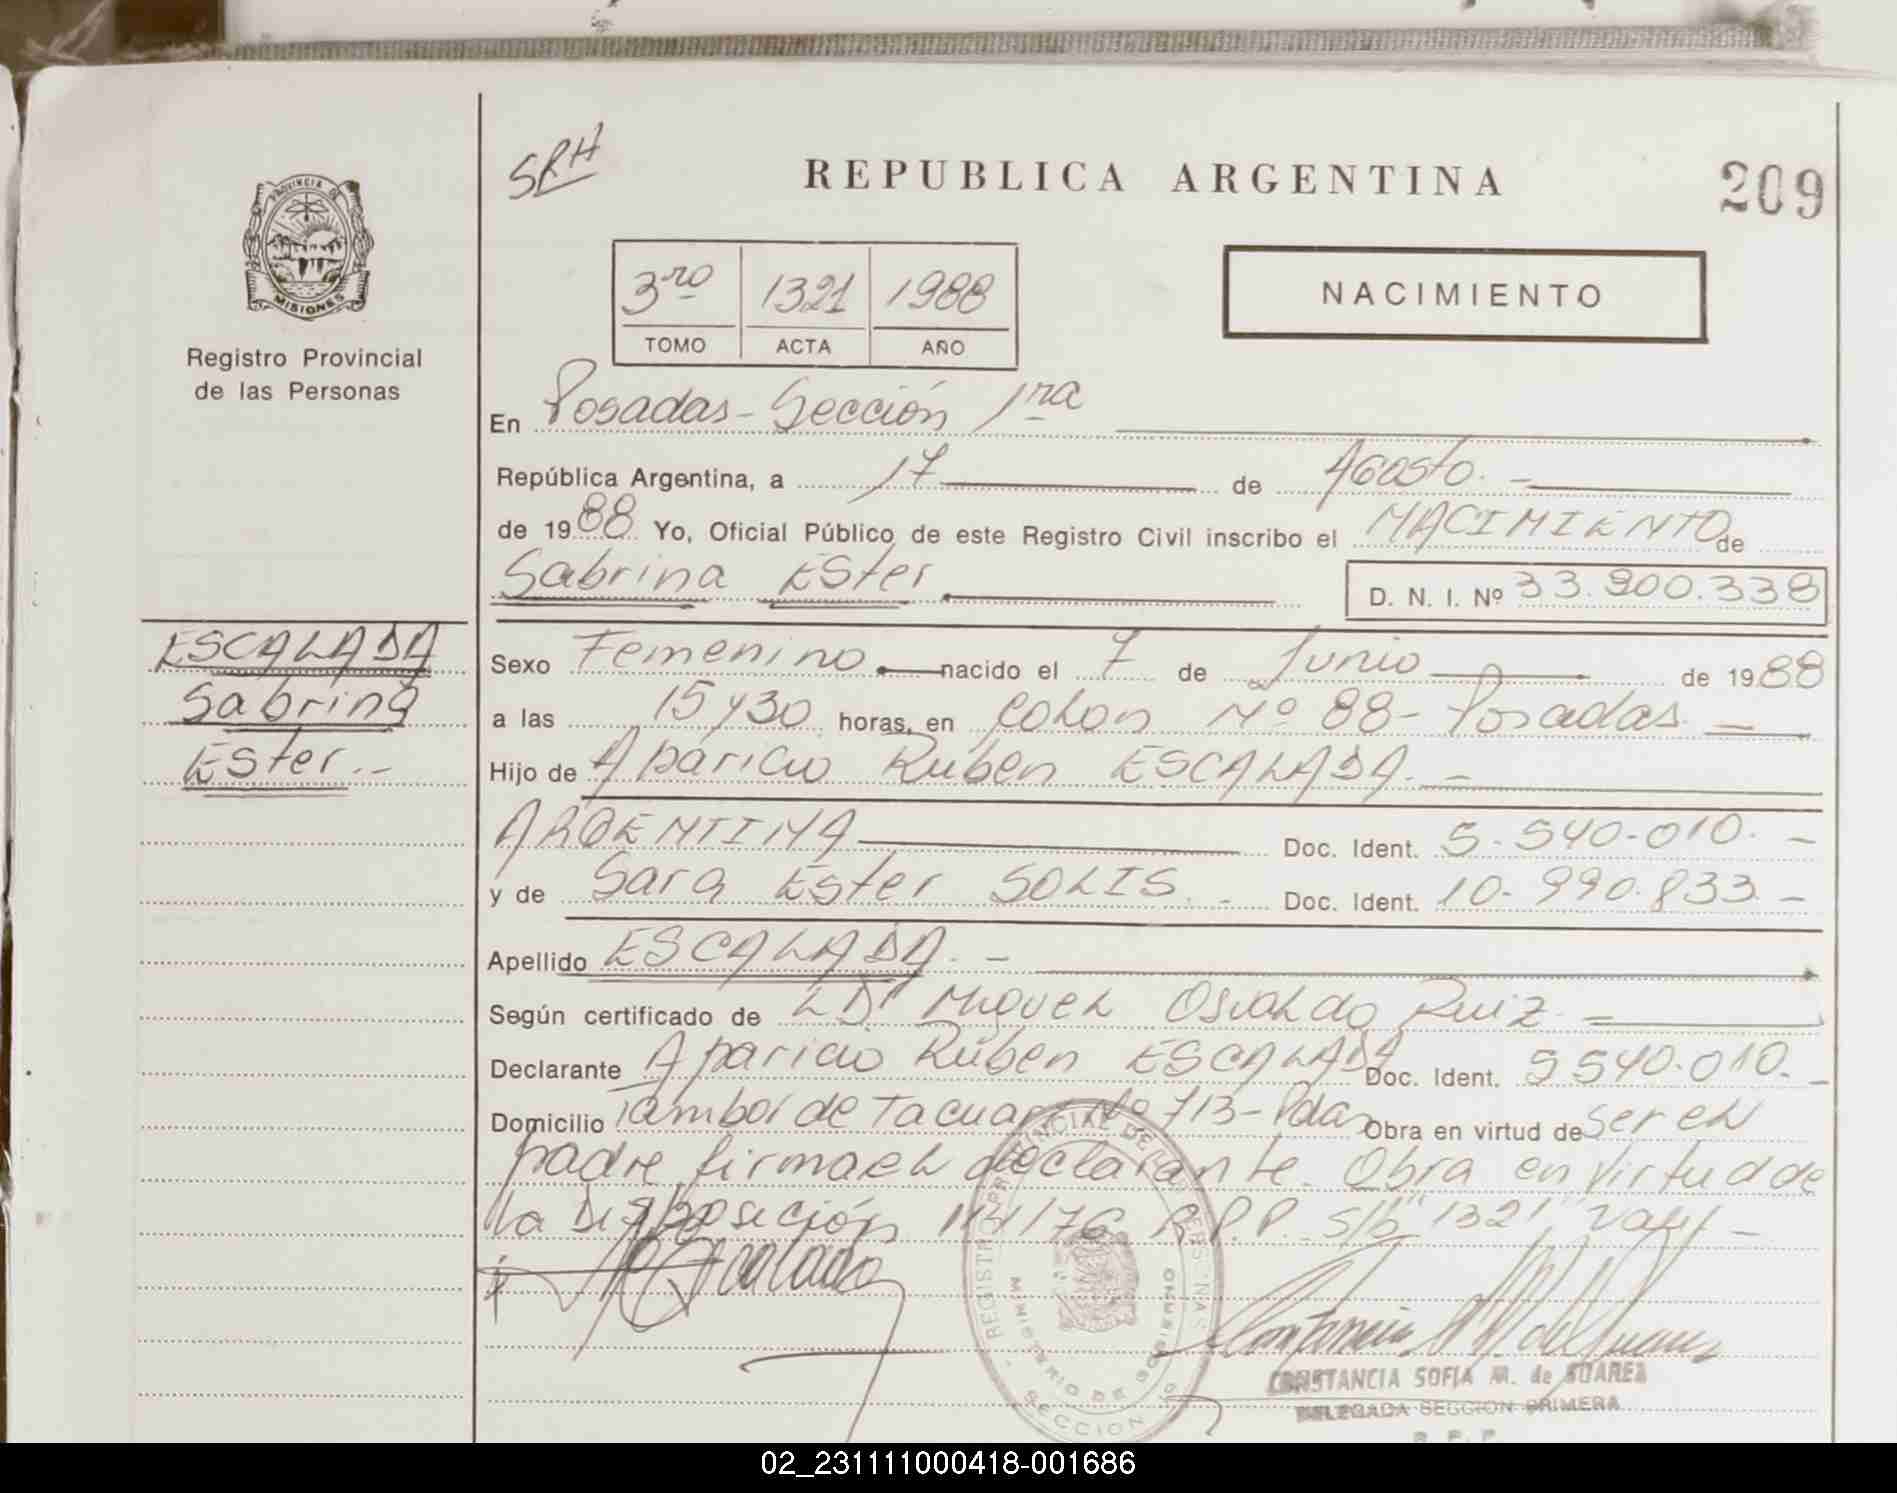 SRH
REPUBLICA ARGENTINA
209
PROVINCIA DE
MISIONES
Registro Provincial
de las Personas
3ro 1321 1988
TOMO ACTA AÑO
NACIMIENTO
En Posadas - Sección 1ra
República Argentina, a 17 de Agosto. -
de 1988 Yo, Oficial Público de este Registro Civil inscribo el NACIMIENTO de
Sabrina Ester D. N. I. Nº 33.900.338
ESCALADA
Sabrina
Ester.-
Sexo Femenino nacido el 7 de Junio de 1988
a las 15 y 30 horas, en Colon Nº 88 - Posadas. -
Hijo de Aparicio Ruben ESCALADA. -
ARGENTINA Doc. Ident. 5.540.010. -
y de Sara Ester SOLIS. - Doc. Ident. 10.990.833. -
Apellido ESCALADA. -
Según certificado de Dr Miguel Osvaldo Ruiz. -
Declarante Aparicio Ruben ESCALADA Doc. Ident. 5.540.010. -
Domicilio Tambor de Tacuari Nº 713 - Pdas Obra en virtud de ser el
padre, firma el declarante. Obra en virtud de
la Disposición 114/76 R.P.P. s/b "1321", Vale -
REGISTRO PROVINCIAL DE LAS PERSONAS
MINISTERIO DE GOBIERNO
SECCION
CONSTANCIA SOFIA M. de SUAREZ
DELEGADA SECCION PRIMERA
R. P. P
02_231111000418-001686